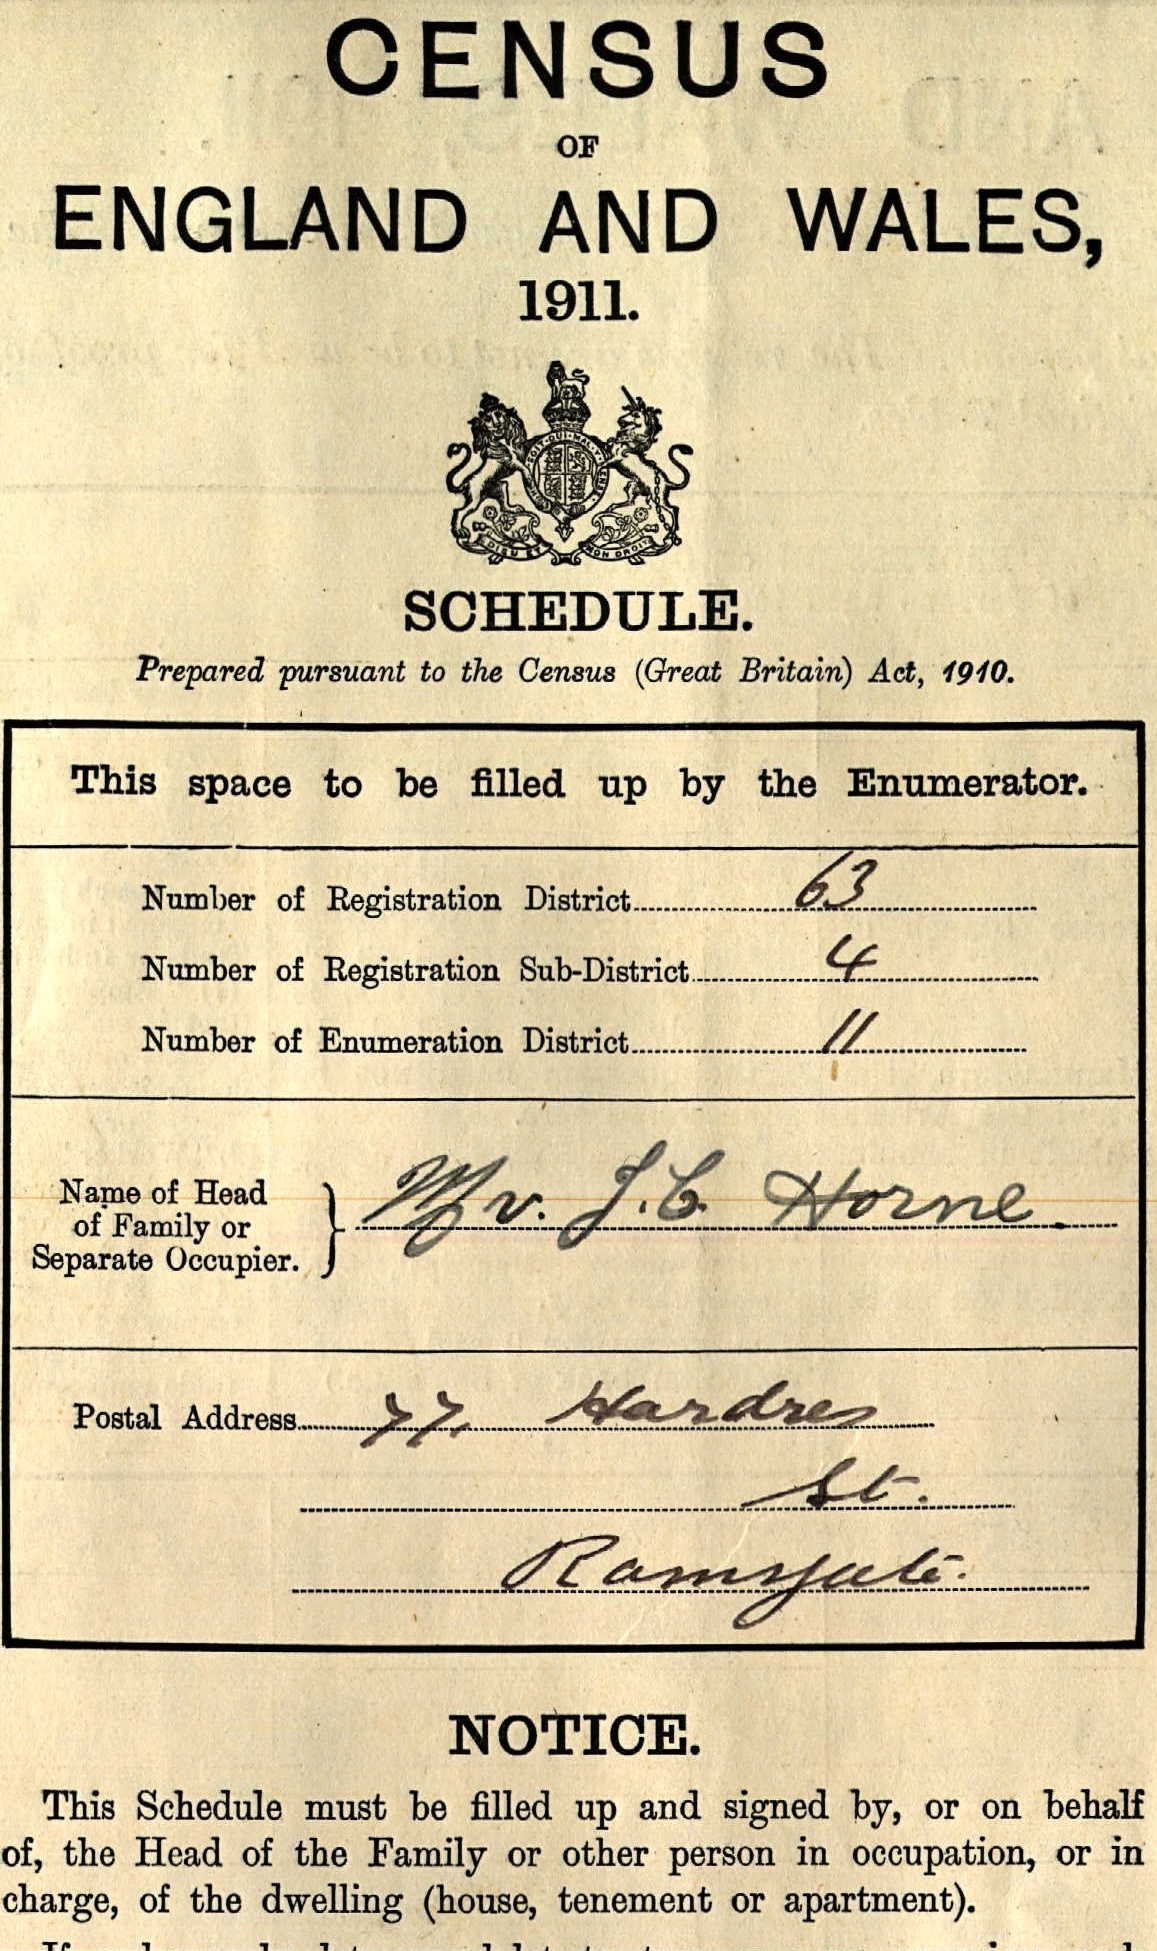 CENSUS
OF
ENGLAND AND WALES,
1911.
SCHEDULE.
Prepared pursuant to the Census (Great Britain) Act, 1910.
This space to be filled up by the Enumerator.
Number of Registration District 63
Number of Registration Sub-District 4
Number of Enumeration District 11
Name of Head
of Family or
Separate Occupier. } Mr. J. C. Horne.
Postal Address 77. Hardres
St.
Ramsgate.
NOTICE.
This Schedule must be filled up and signed by, or on behalf
of, the Head of the Family or other person in occupation, or in
charge, of the dwelling (house, tenement or apartment).